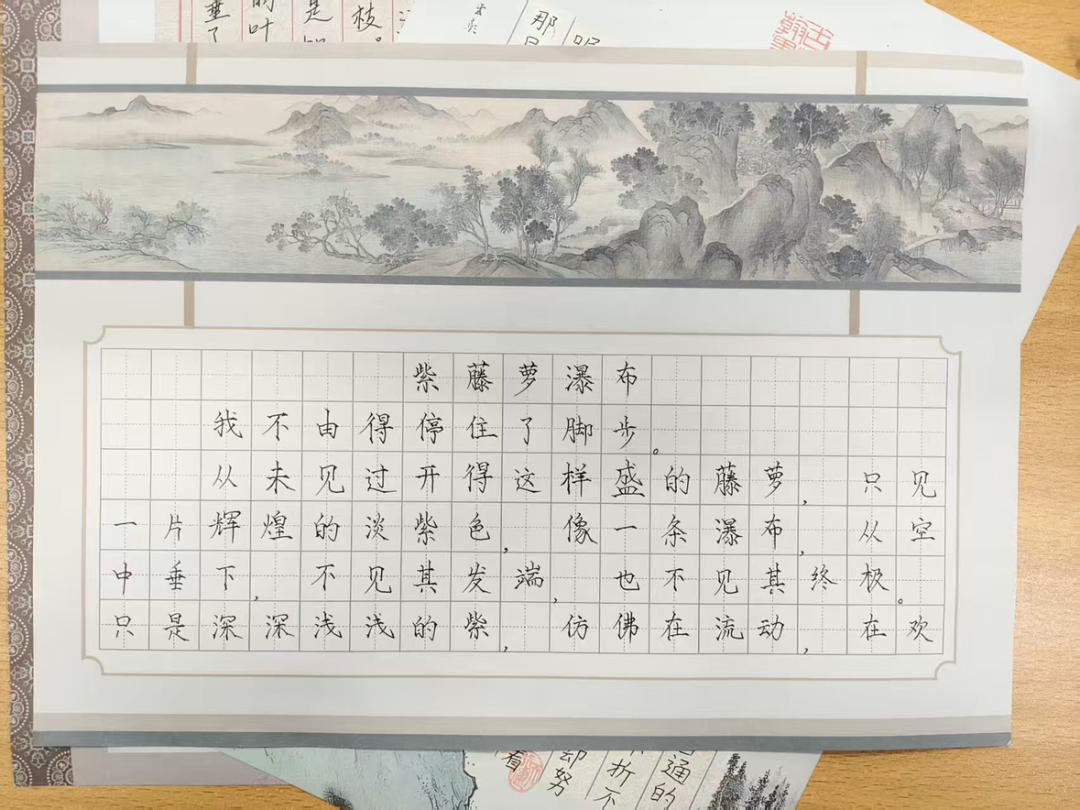 垂了
的叶
是
枝。
那
紫藤萝瀑布
我不由得停住了脚步。
从未见过开得这样盛的藤萝,只见
一片辉煌的淡紫色,像一条瀑布,从空
中垂下,不见其发端,也不见其终极。
只是深深浅浅的紫,仿佛在流动,在欢
看
却努
折不
通的